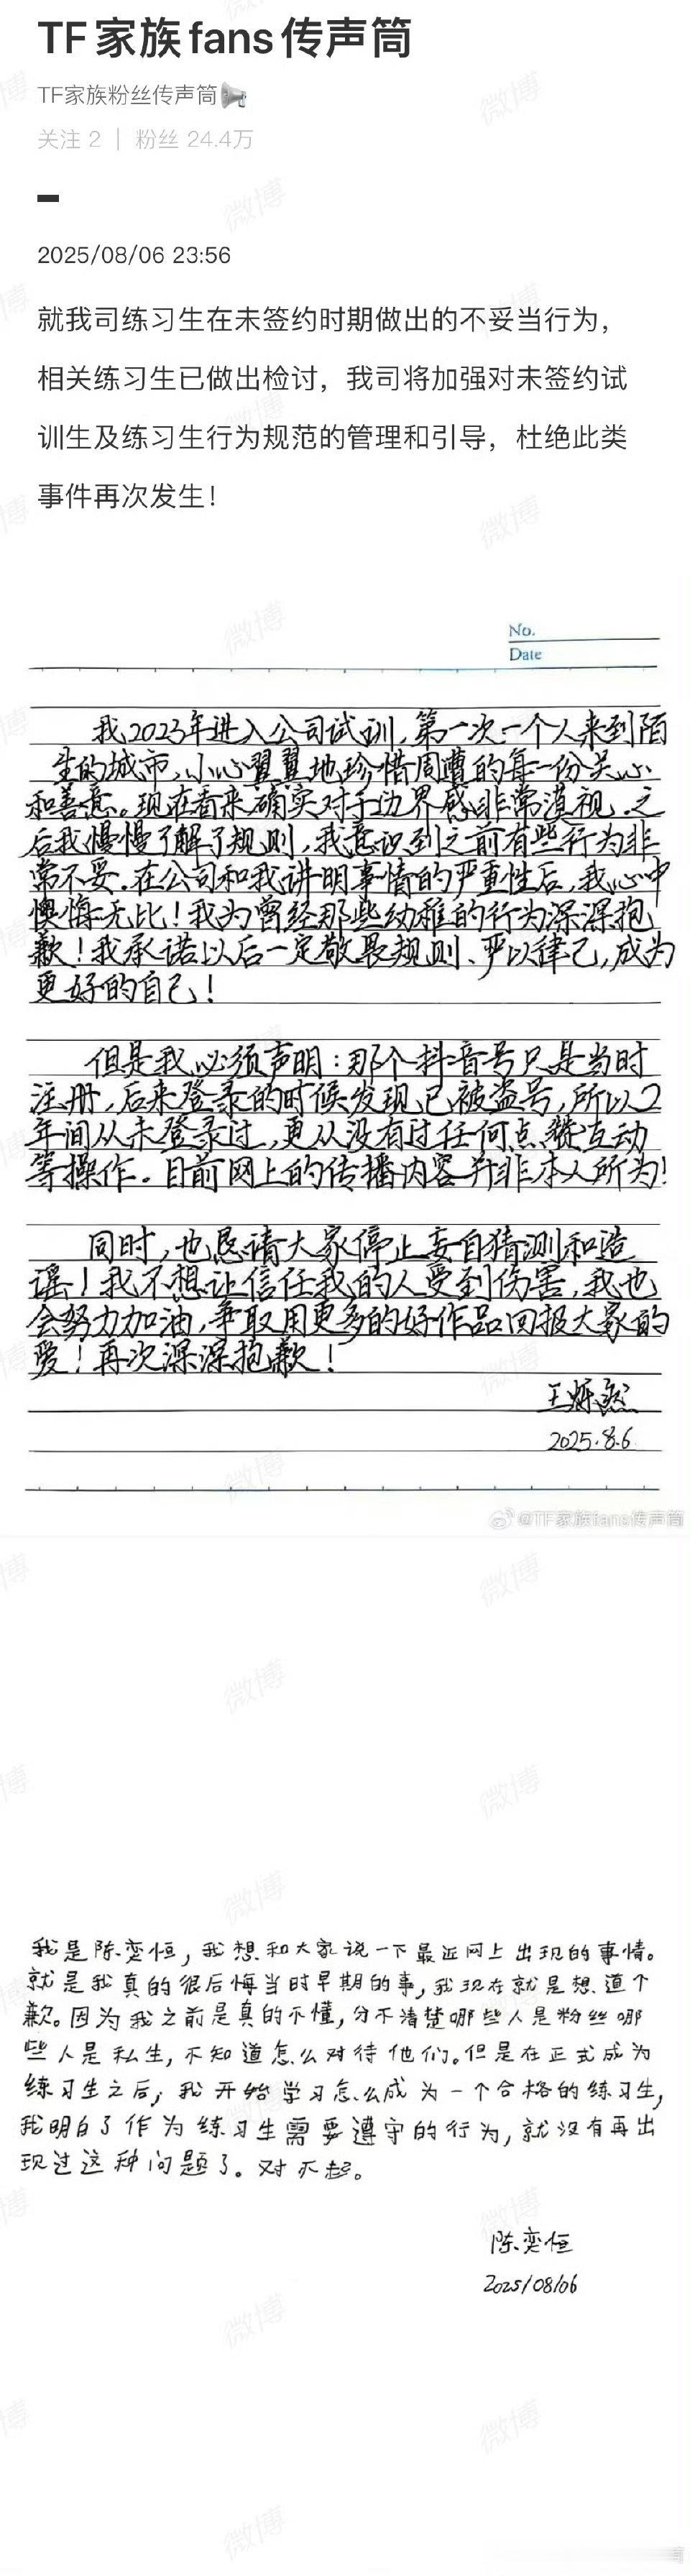 TF家族fans传声筒
TF家族粉丝传声筒
关注 2 | 粉丝 24.4万
2025/08/06 23:56
就我司练习生在未签约时期做出的不妥当行为，
相关练习生已做出检讨，我司将加强对未签约试
训生及练习生行为规范的管理和引导，杜绝此类
事件再次发生！
No.
Date
我2023年进入公司试训，第一次一个人来到陌
生的城市，小心翼翼地珍惜周遭的每一份关心
和善意。现在看来确实对于边界感非常漠视。之
后我慢慢了解了规则，我意识到之前有些行为非
常不妥。在公司和我讲明事情的严重性后，我心中
懊悔无比！我为曾经那些幼稚的行为深深抱
歉！我承诺以后一定敬畏规则、严以律己，成为
更好的自己！
但是我必须声明：那个抖音号只是当时
注册，后来登录的时候发现已被盗号，所以2
年间从未登录过，更从没有过任何点赞互动
等操作。目前网上的传播内容并非本人所为！
同时，也恳请大家停止妄自猜测和造
谣！我不想让信任我的人受到伤害，我也
会努力加油，争取用更多的好作品回报大家的
爱！再次深深抱歉！
王烁然
2025.8.6
@TF家族fans传声筒
我是陈奕恒，我想和大家说一下最近网上出现的事情。
就是我真的很后悔当时早期的事，我现在就是想道个
歉。因为我之前是真的不懂，分不清楚哪些人是粉丝哪
些人是私生，不知道怎么对待他们。但是在正式成为
练习生之后，我开始学习怎么成为一个合格的练习生，
我明白了作为练习生需要遵守的行为，就没有再出
现过这种问题了。对不起。
陈奕恒
2025/08/06
微博